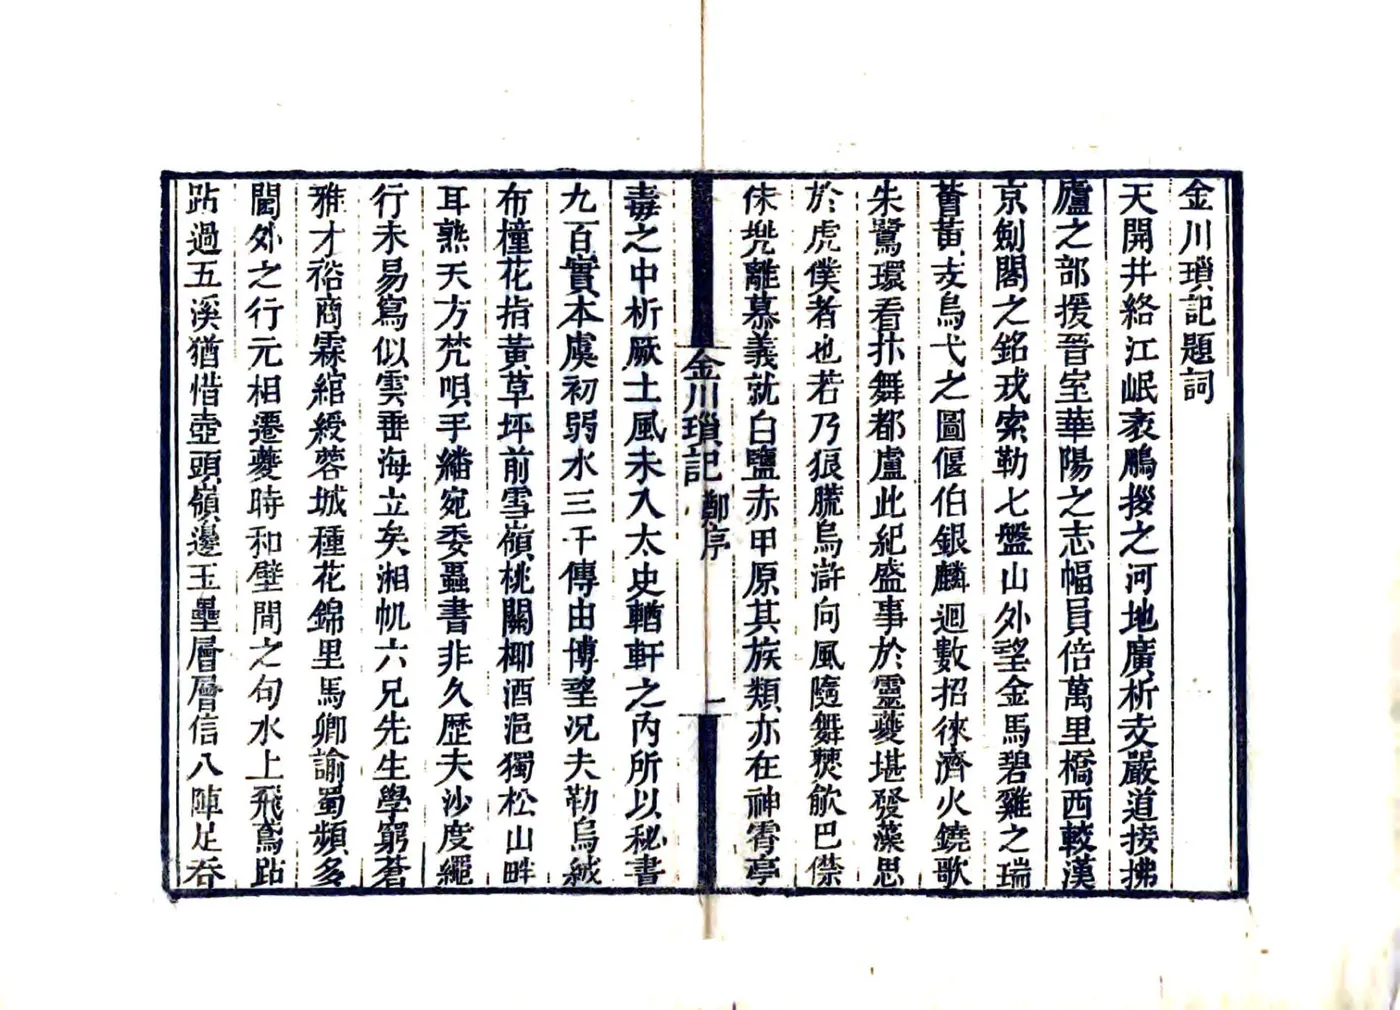 金川瑣記題詞
天開井絡江岷表鵬拶之河地廣析支嚴道接拂
廬之部援晉室華陽之志幅員倍萬里橋西較漢
京劍閣之銘戎索勒七盤山外望金馬碧雞之瑞
菁黃支烏弋之圖偃伯銀麟迴數招徠濟火鐃歌
朱鷺環看抃舞都盧此紀盛事於靈夔堪發藻思
於虎僕者也若乃狼䑃烏滸向風隨舞僰飲巴僸
侏兠離慕義就白鹽赤甲原其族類亦在神霄亭
金川瑣記 鄭序 一
毒之中析厥土風未入太史輶軒之內所以秘書
九百實本虞初弱水三千傳由博望況夫勒烏絨
布橦花指黃草坪前雪嶺桃關椰酒浥獨松山畔
耳熟天方梵唄手繙宛委蟲書非久歷夫沙度繩
行未易寫似雲垂海立矣湘帆六兄先生學窮蒼
雅才裕商霖綰綬蓉城種花錦里馬卿諭蜀頻多
閫外之行元相遷夔時和壁間之句水上飛鳶跕
跕過五溪猶惜壺頭嶺邊玉壘層層信八陣足吞